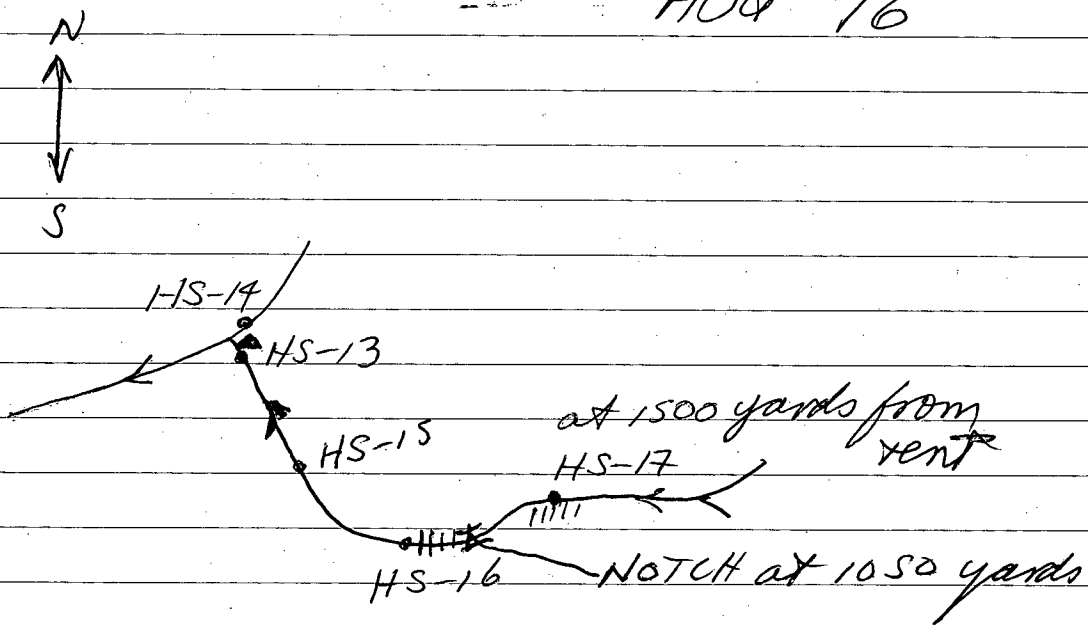 AUG
N
S
HS-14
HS-13
HS-15
at 1500 yards from
vent
HS-17
HS-16
NOTCH at 1050 yards